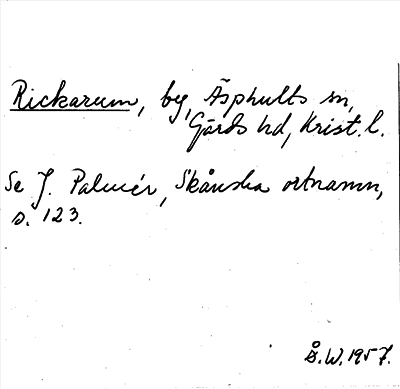 Rickarum, by, Äsphults sn,
Gärds hd, Krist. l.
Se J. Palmér, Skånska ortnamn,
s. 123.
Å. W. 1957.